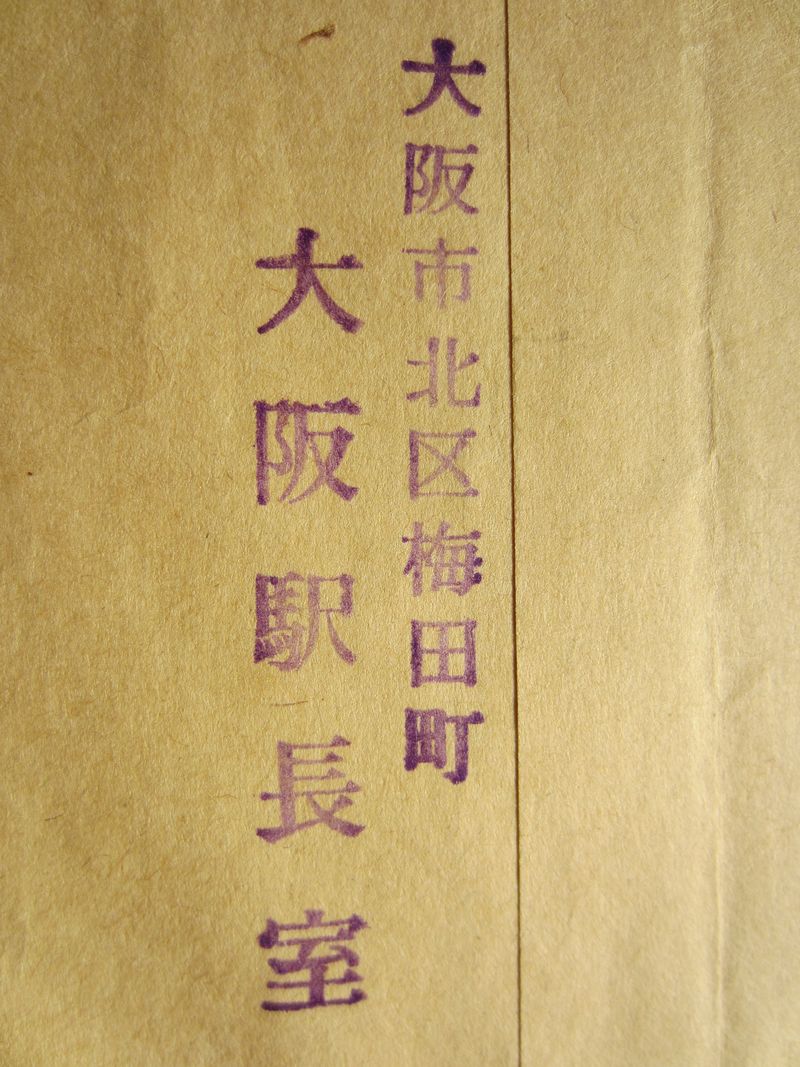 大阪市北区梅田町
大阪駅長室